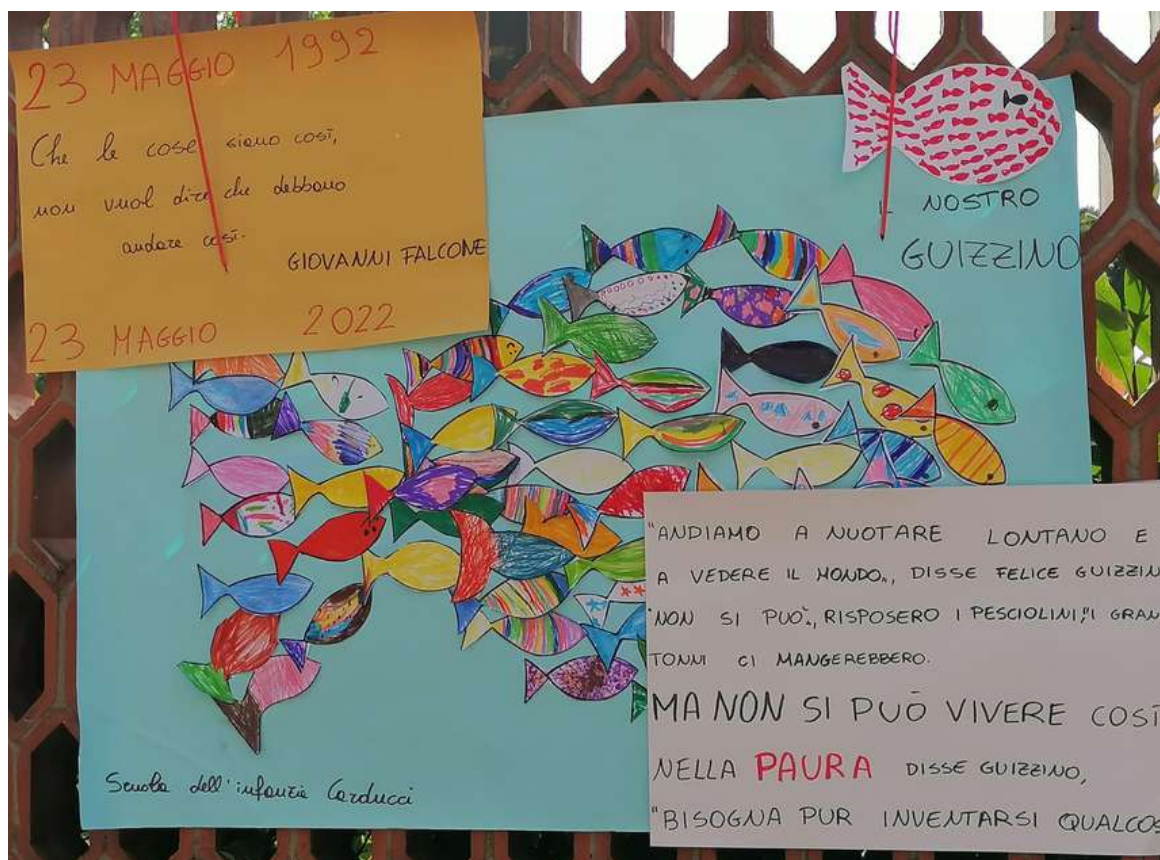 23 MAGGIO 1992
Che le cose siano così,
non vuol dire che debbano
andare così.
GIOVANNI FALCONE
23 MAGGIO 2022
IL NOSTRO
GUIZZINO
"ANDIAMO A NUOTARE LONTANO E
A VEDERE IL MONDO„, DISSE FELICE GUIZZIN
"NON SI PUÒ„, RISPOSERO I PESCIOLINI,"I GRAN
TONNI CI MANGEREBBERO.
MA NON SI PUÒ VIVERE COSÌ
NELLA PAURA DISSE GUIZZINO,
"BISOGNA PUR INVENTARSI QUALCOS
Scuola dell'infanzia Carducci